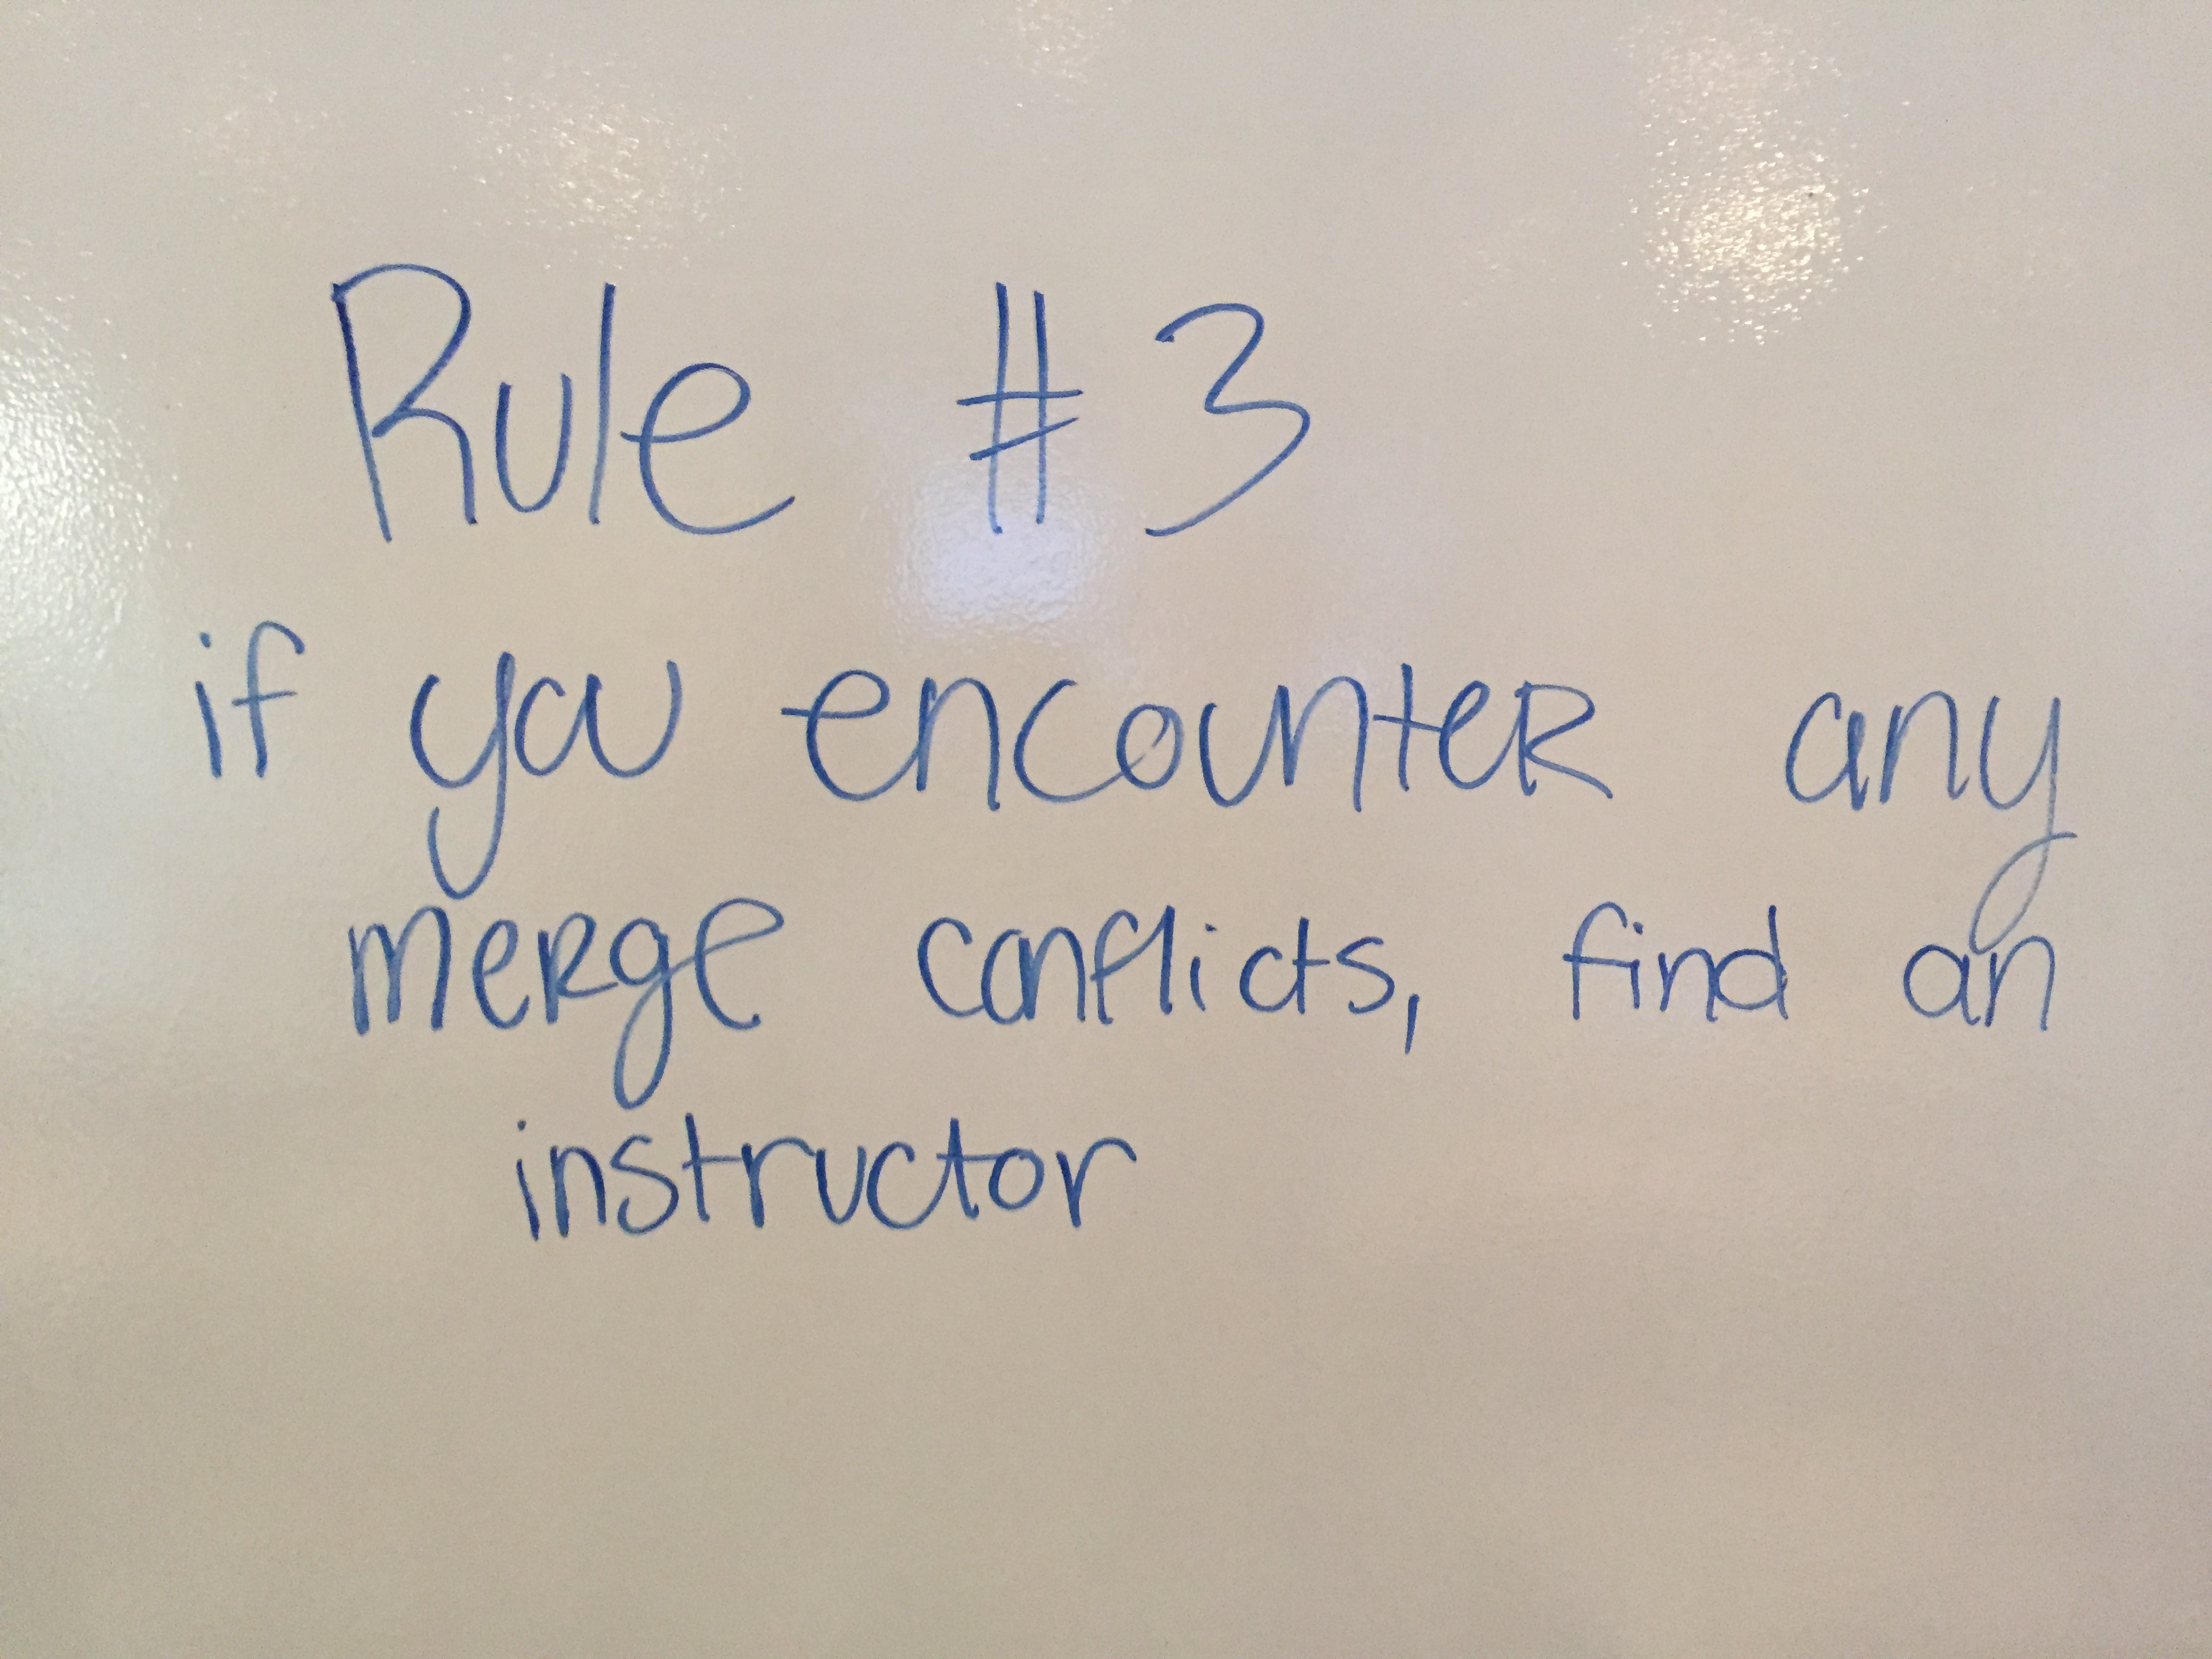 Rule #3
if you encounter any
merge conflicts, find an
instructor